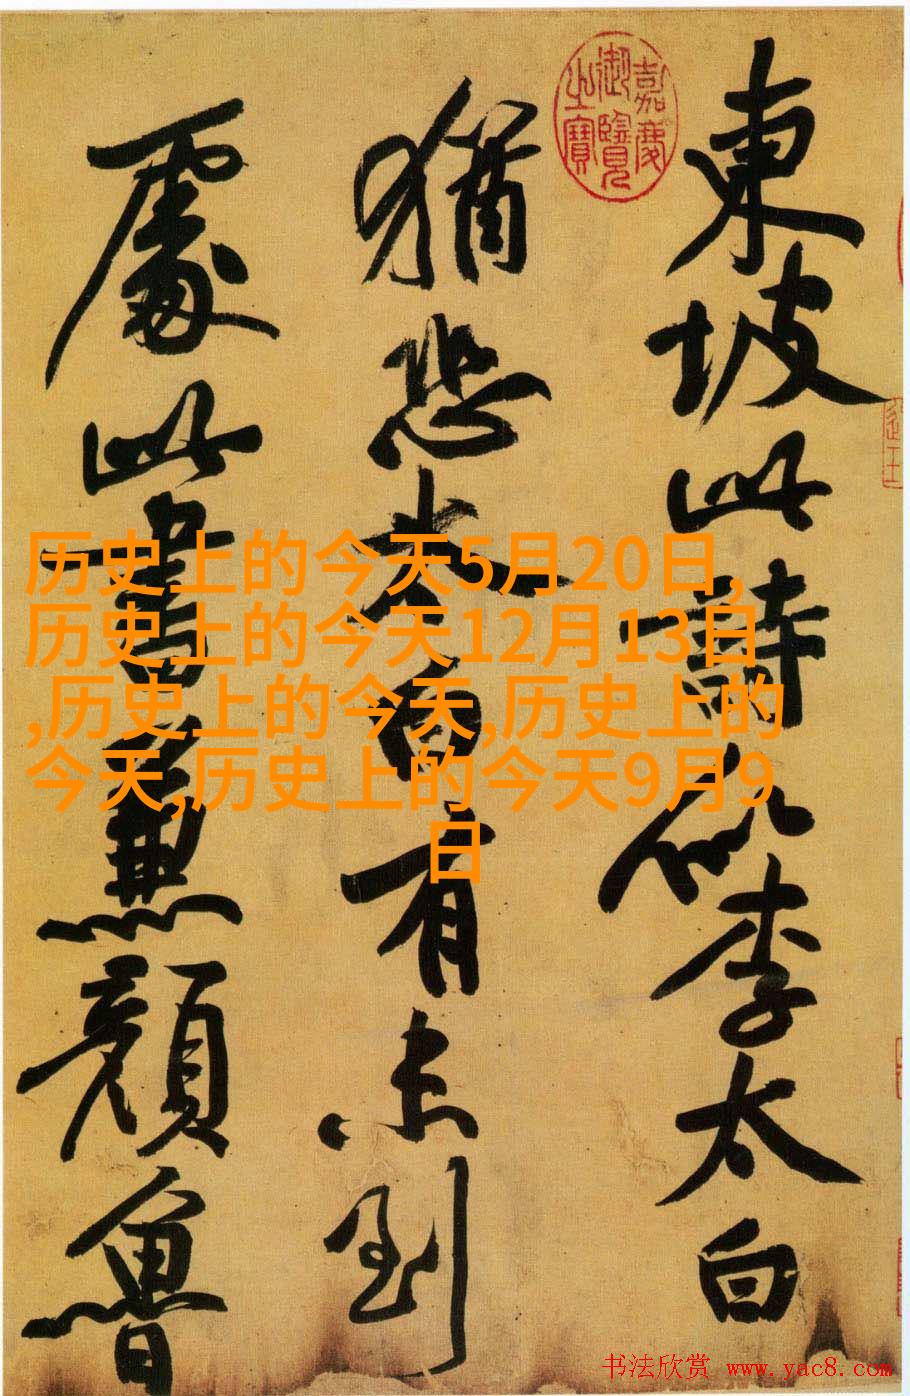 東坡此詩似李太白
猶恐太白有未到
處此書兼顏魯
嘉慶
御覽
之寶
历史上的今天5月20日,
历史上的今天12月13日
,历史上的今天,历史上的
今天,历史上的今天9月9
日
书法欣赏 www.yac8.com